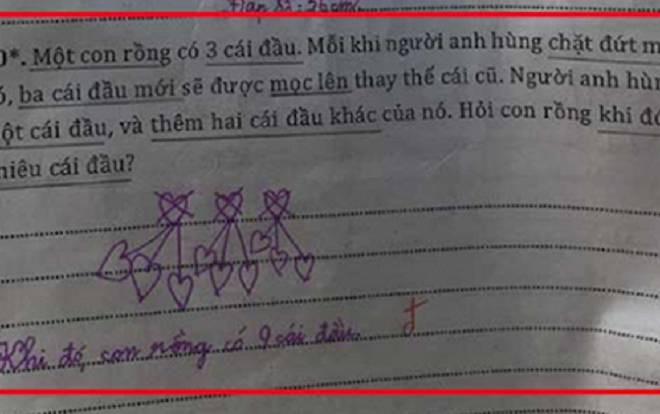 Đáp số: 26cm
*. Một con rồng có 3 cái đầu. Mỗi khi người anh hùng chặt đứt m
, ba cái đầu mới sẽ được mọc lên thay thế cái cũ. Người anh hùn
ột cái đầu, và thêm hai cái đầu khác của nó. Hỏi con rồng khi đó
hiêu cái đầu?
Khi đó, con rồng có 9 cái đầu.